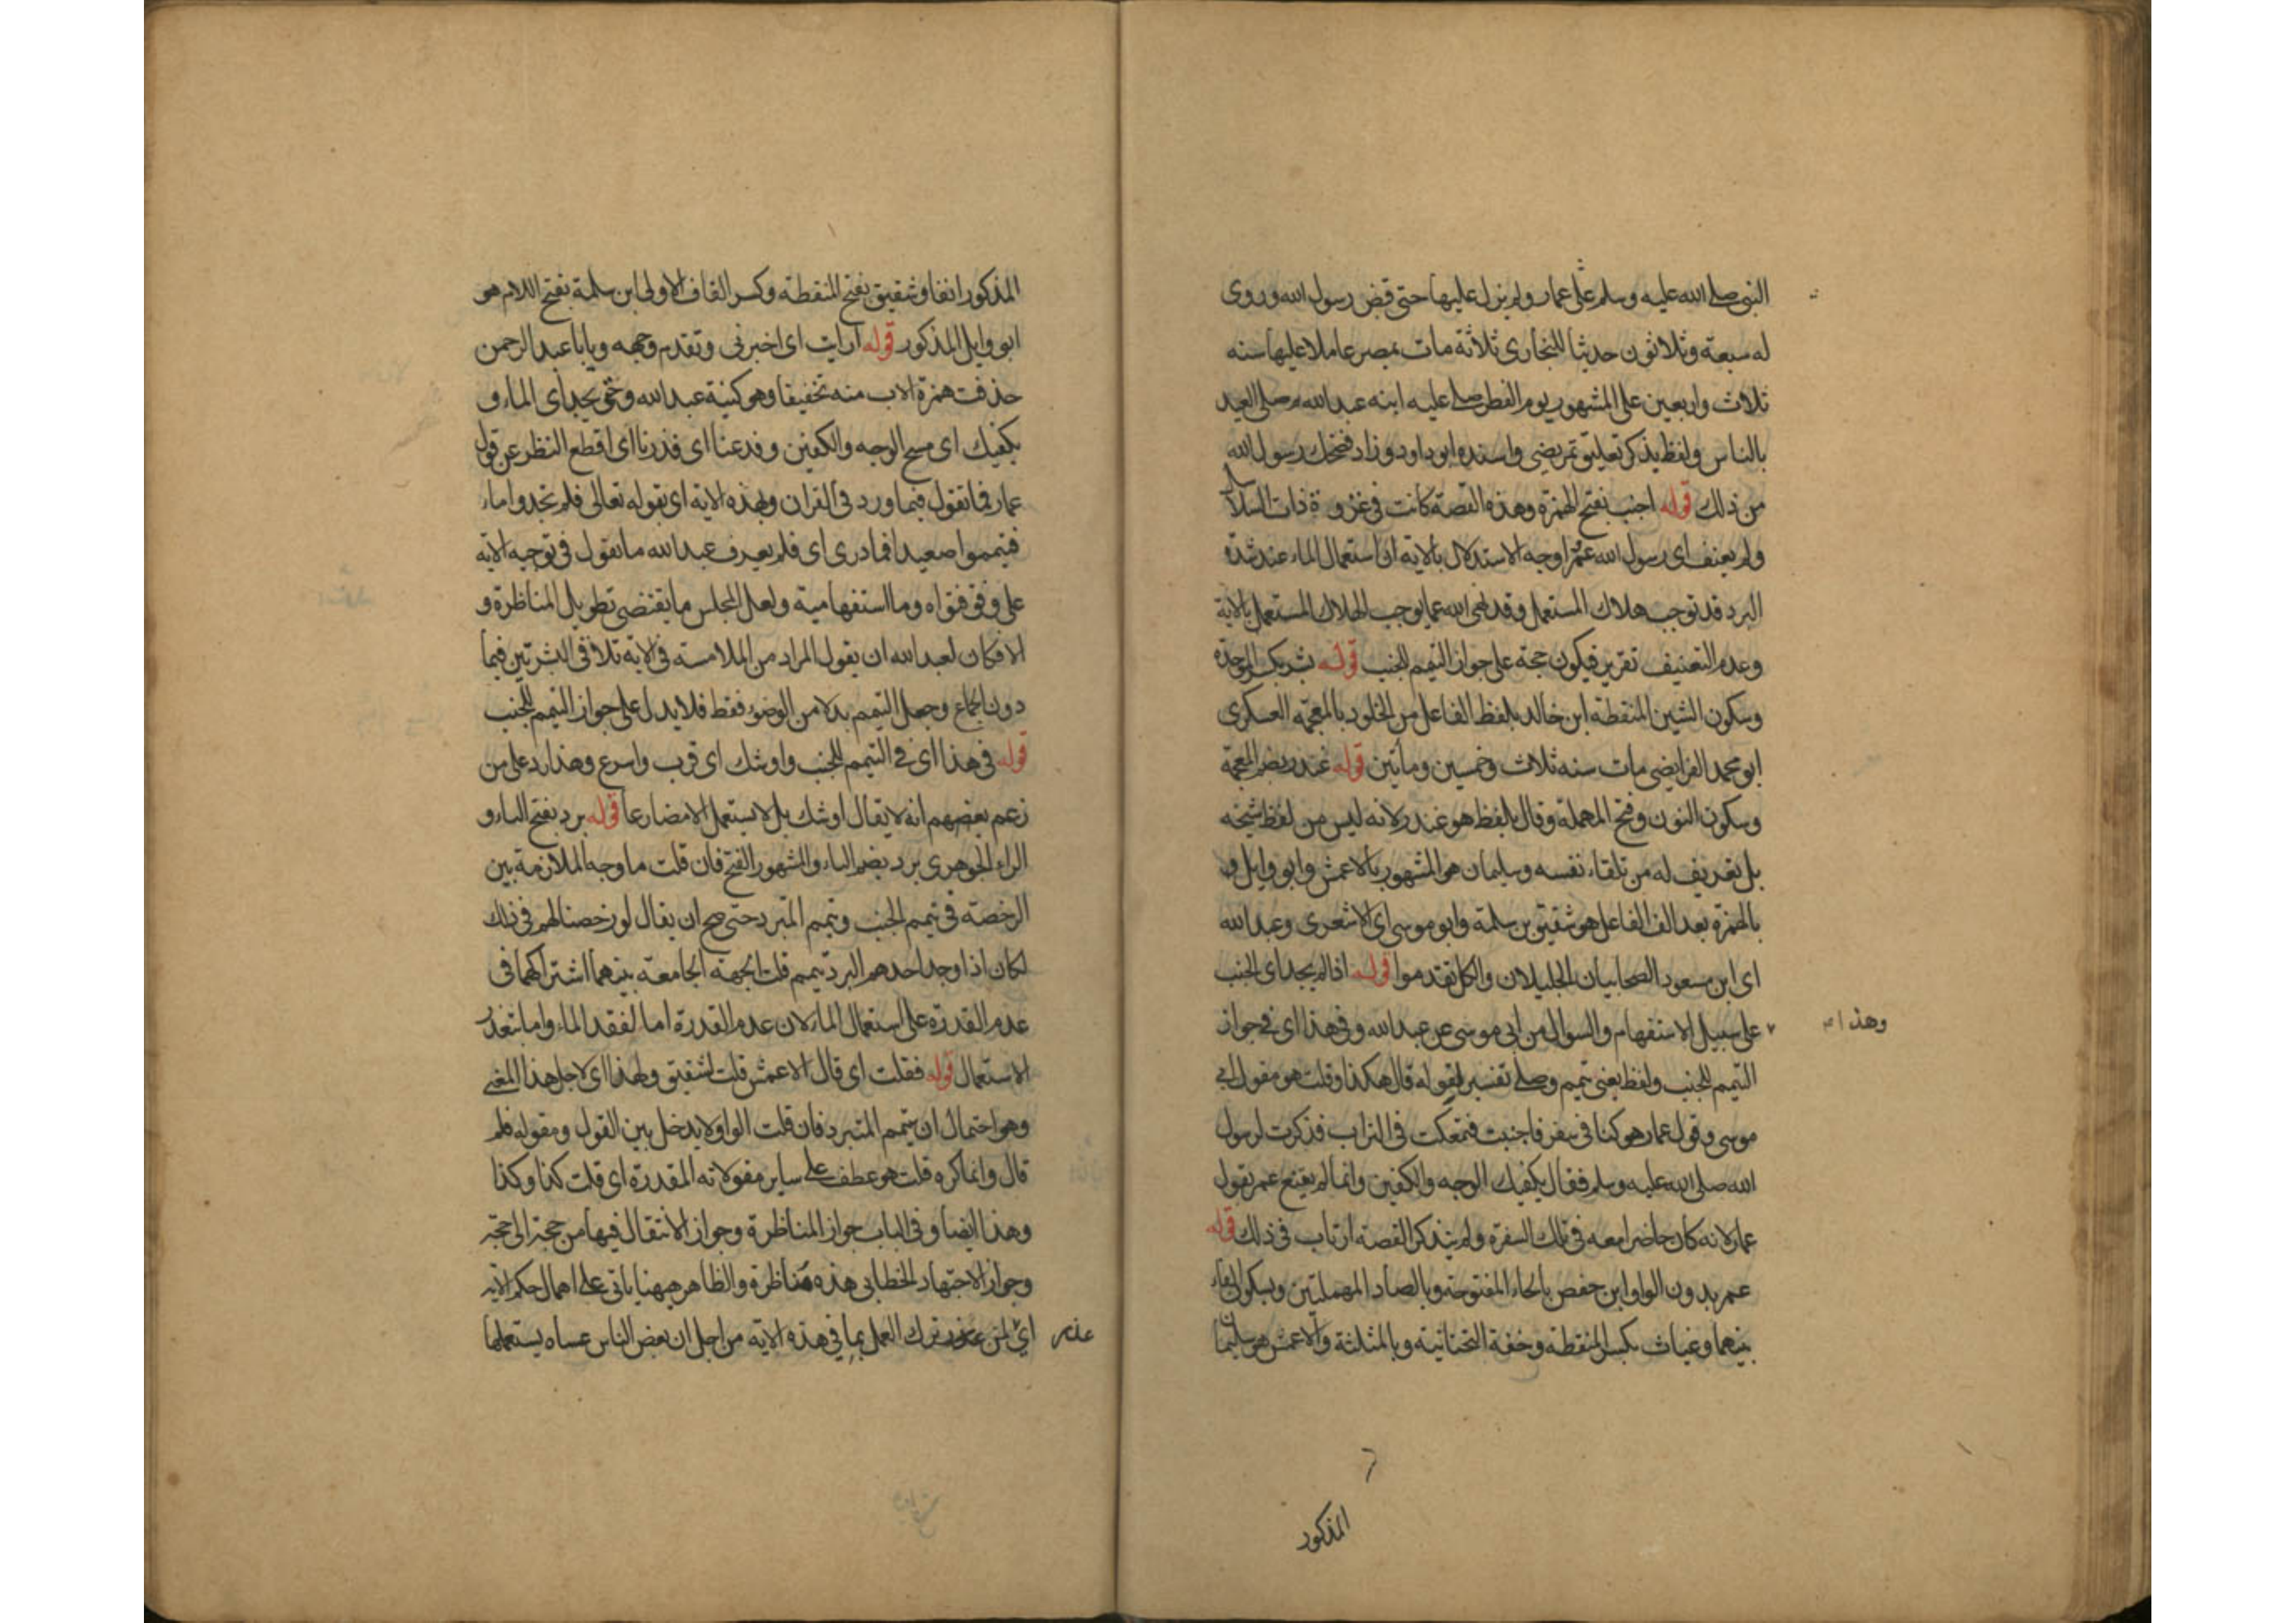 النبي صلى الله عليه وسلم على عمان ولم يزل عليها حتى قبض رسول الله وروى
له سبعة وثلاثون حديثا للبخارى ثلاثة مات بمصر عاملا عليها سنه
ثلاث واربعين على المشهور يوم الفطر صلى عليه ابنه عبد الله ثم صلى العيد
بالناس ولفظ يذكر تعليق تمريضى واسنده ابو داود وزاد فضحك رسول الله
من ذلك قوله اجنب بفتح الهمزة وهذه القصة كانت في غزوة ذات السلاسل
ولم يعنف اى رسول الله عمرا وجه الاستدلال بالاية ان استعمال الماء عند شدة
البرد قد توجب هلاك المستعمل وقد نهى الله عما يوجب الهلاك المستعمل بالاية
وعدم التعنيف تقرير فيكون حجة على جواز التيمم للجنب قوله بشر بكسر الموحدة
وسكون الشين المنقطة ابن خالد بلفظ الفاعل من الخلود بالمعجمه العسكرى
ابو محمد الفرايضى مات سنه ثلاث وخمسين ومأتين قوله غندر بضم المعجمة
وسكون النون وفتح المهملة وقال بلفظ هو غندر لانه ليس من لفظ شيخه
بل تعريف له من تلقاء نفسه وسليمان هو المشهور بالاعمش وابو وايل و
بالهمزة بعد الف الفاعل هو شقيق بن سلمة وابو موسى اى الاشعرى وعبد الله
اى ابن مسعود الصحابيان الجليلان والكل تقدموا قوله اذا لم يجد اى الجنب
وهذا
على سبيل الاستفهام والسوال من ابى موسى عن عبد الله وفي هذا اى في جواز
التيمم للجنب ولفظ يعنى تيمم وصلى تفسير لقوله قال هكذا وقلت هو مقول ابى
موسى وقول عمار هو كنا في سفر فاجنبت فتمعكت في التراب فذكرت لرسول
الله صلى الله عليه وسلم فقال يكفيك الوجه والكفين وانما لم يقنع عمر بقول
عمار لانه كان حاضرا معه في تلك السفرة ولم يتذكر القصة ارتاب في ذلك قوله
عمر بدون الواو ابن حفص بالحاء المفتوحة وبالصاد المهملتين وبسكون الفاء
بينهما وغياث بكسر المنقطة وخفة التحتانية وبالمثلثة والاعمش هو سليمان
المذكور
المذكور انفا وشقيق بفتح المنقطة وكسر القاف الاولى ابن سلمة بفتح اللام هو
ابو وايل المذكور قوله ارايت اى اخبرنى وتقدم وجهه ويابا عبد الرحمن
حذفت همزة الاب منه تخفيفا وهو كنية عبد الله وحتى يجد اى الماء و
يكفيك اى مسح الوجه والكفين وفدعنا اى فذرنا اى اقطع النظر عن قول
عمار فما تقول فيما ورد في القران وبهذه الاية اى بقوله تعالى فلم تجدوا ماء
فتيمموا صعيدا فما درى اى فلم يعرف عبد الله ما تقول في توجيه الاية
على وفق فتواه وما استفهامية ولعل المجلس ما يقتضى تطويل المناظرة و
الا فكان لعبد الله ان يقول المراد من الملامسة في الاية تلاقى البشرتين فيما
دون الجماع وجعل التيمم بدلا من الوضوء فقط فلا يدل على جواز التيمم للجنب
قوله في هذا اى في التيمم للجنب واوشك اى قرب واسرع وهذا رد على من
زعم بعضهم انه لا يقال اوشك بل لا يستعمل الا مضارعا قوله برد بفتح الباء و
الراء الجوهرى برد بضم الباء والمشهور الفتح فان قلت ما وجه الملازمة بين
الرخصة في تيمم الجنب وتيمم المتبرد حتى صح ان يقال لو رخصنا لهم في ذلك
لكان اذا وجد احدهم البرد تيمم قلت الجهة الجامعة بينهما اشتراكهما في
عدم القدرة على استعمال الماء لان عدم القدرة اما لفقد الماء واما بتعذر
الاستعمال قوله فقلت اى قال الاعمش قلت لشقيق ولهذا اى لاجل هذا المعنى
وهو احتمال ان يتيمم المتبرد فان قلت الواو لا يدخل بين القول ومقوله فلم
قال وانما كره قلت هو عطف على ساير مقولاته المقدرة اى قلت كذا وكذا
وهذا ايضا وفي الباب جواز المناظرة وجواز الانتقال فيها من حجة الى حجة
وجواز الاجتهاد الخطابى هذه مناظرة والظاهر ههنا ياتى على اهمال حكم الاية
عذر
اى لمن ترك العمل بما في هذه الاية من اجل ان بعض الناس عساه يستعملها